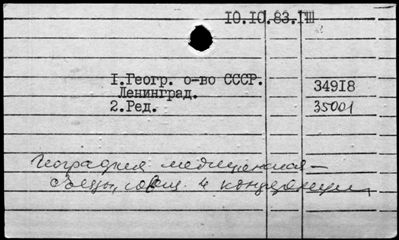 10.10.83.ГШ
1.Геогр. о-во СССР. 34918
Ленинград.
2.Ред. 35001
География медицинская –
Съезды, совещ. и конференции